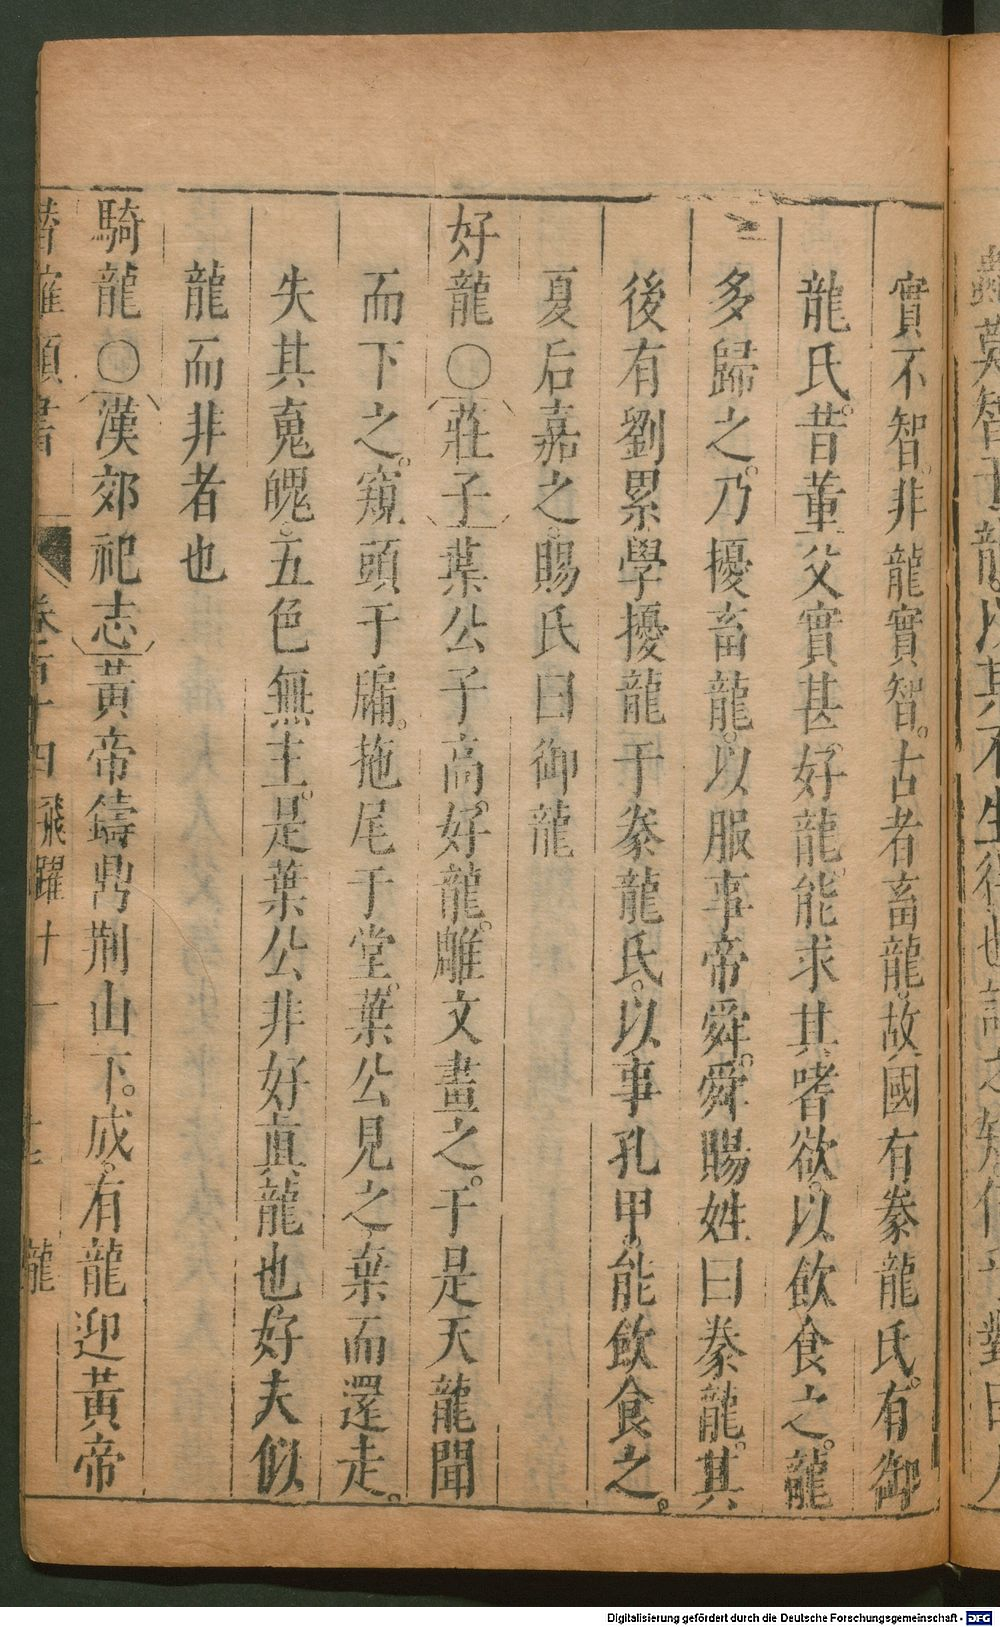 實不智。非龍實智。古者畜龍。故國有豢龍氏。有御
龍氏。昔董父實甚好龍。能求其嗜欲。以飲食之。龍
多歸之。乃擾畜龍。以服事帝舜。舜賜姓曰豢龍。其
後有劉累學擾龍于豢龍氏。以事孔甲。能飲食之。
夏后嘉之。賜氏曰御龍
好龍〇莊子葉公子高。好龍。雕文畫之。于是天龍聞
而下之。窺頭于牖。拖尾于堂。葉公見之。棄而還走。
失其䰟魄。五色無主。是葉公非好真龍也。好夫似
龍而非者也
騎龍〇漢郊祀志黃帝鑄鼎荆山下。成。有龍迎黃帝
卷百十四 飛躍十一 龍
Digitalisierung gefördert durch die Deutsche Forschungsgemeinschaft - DFG